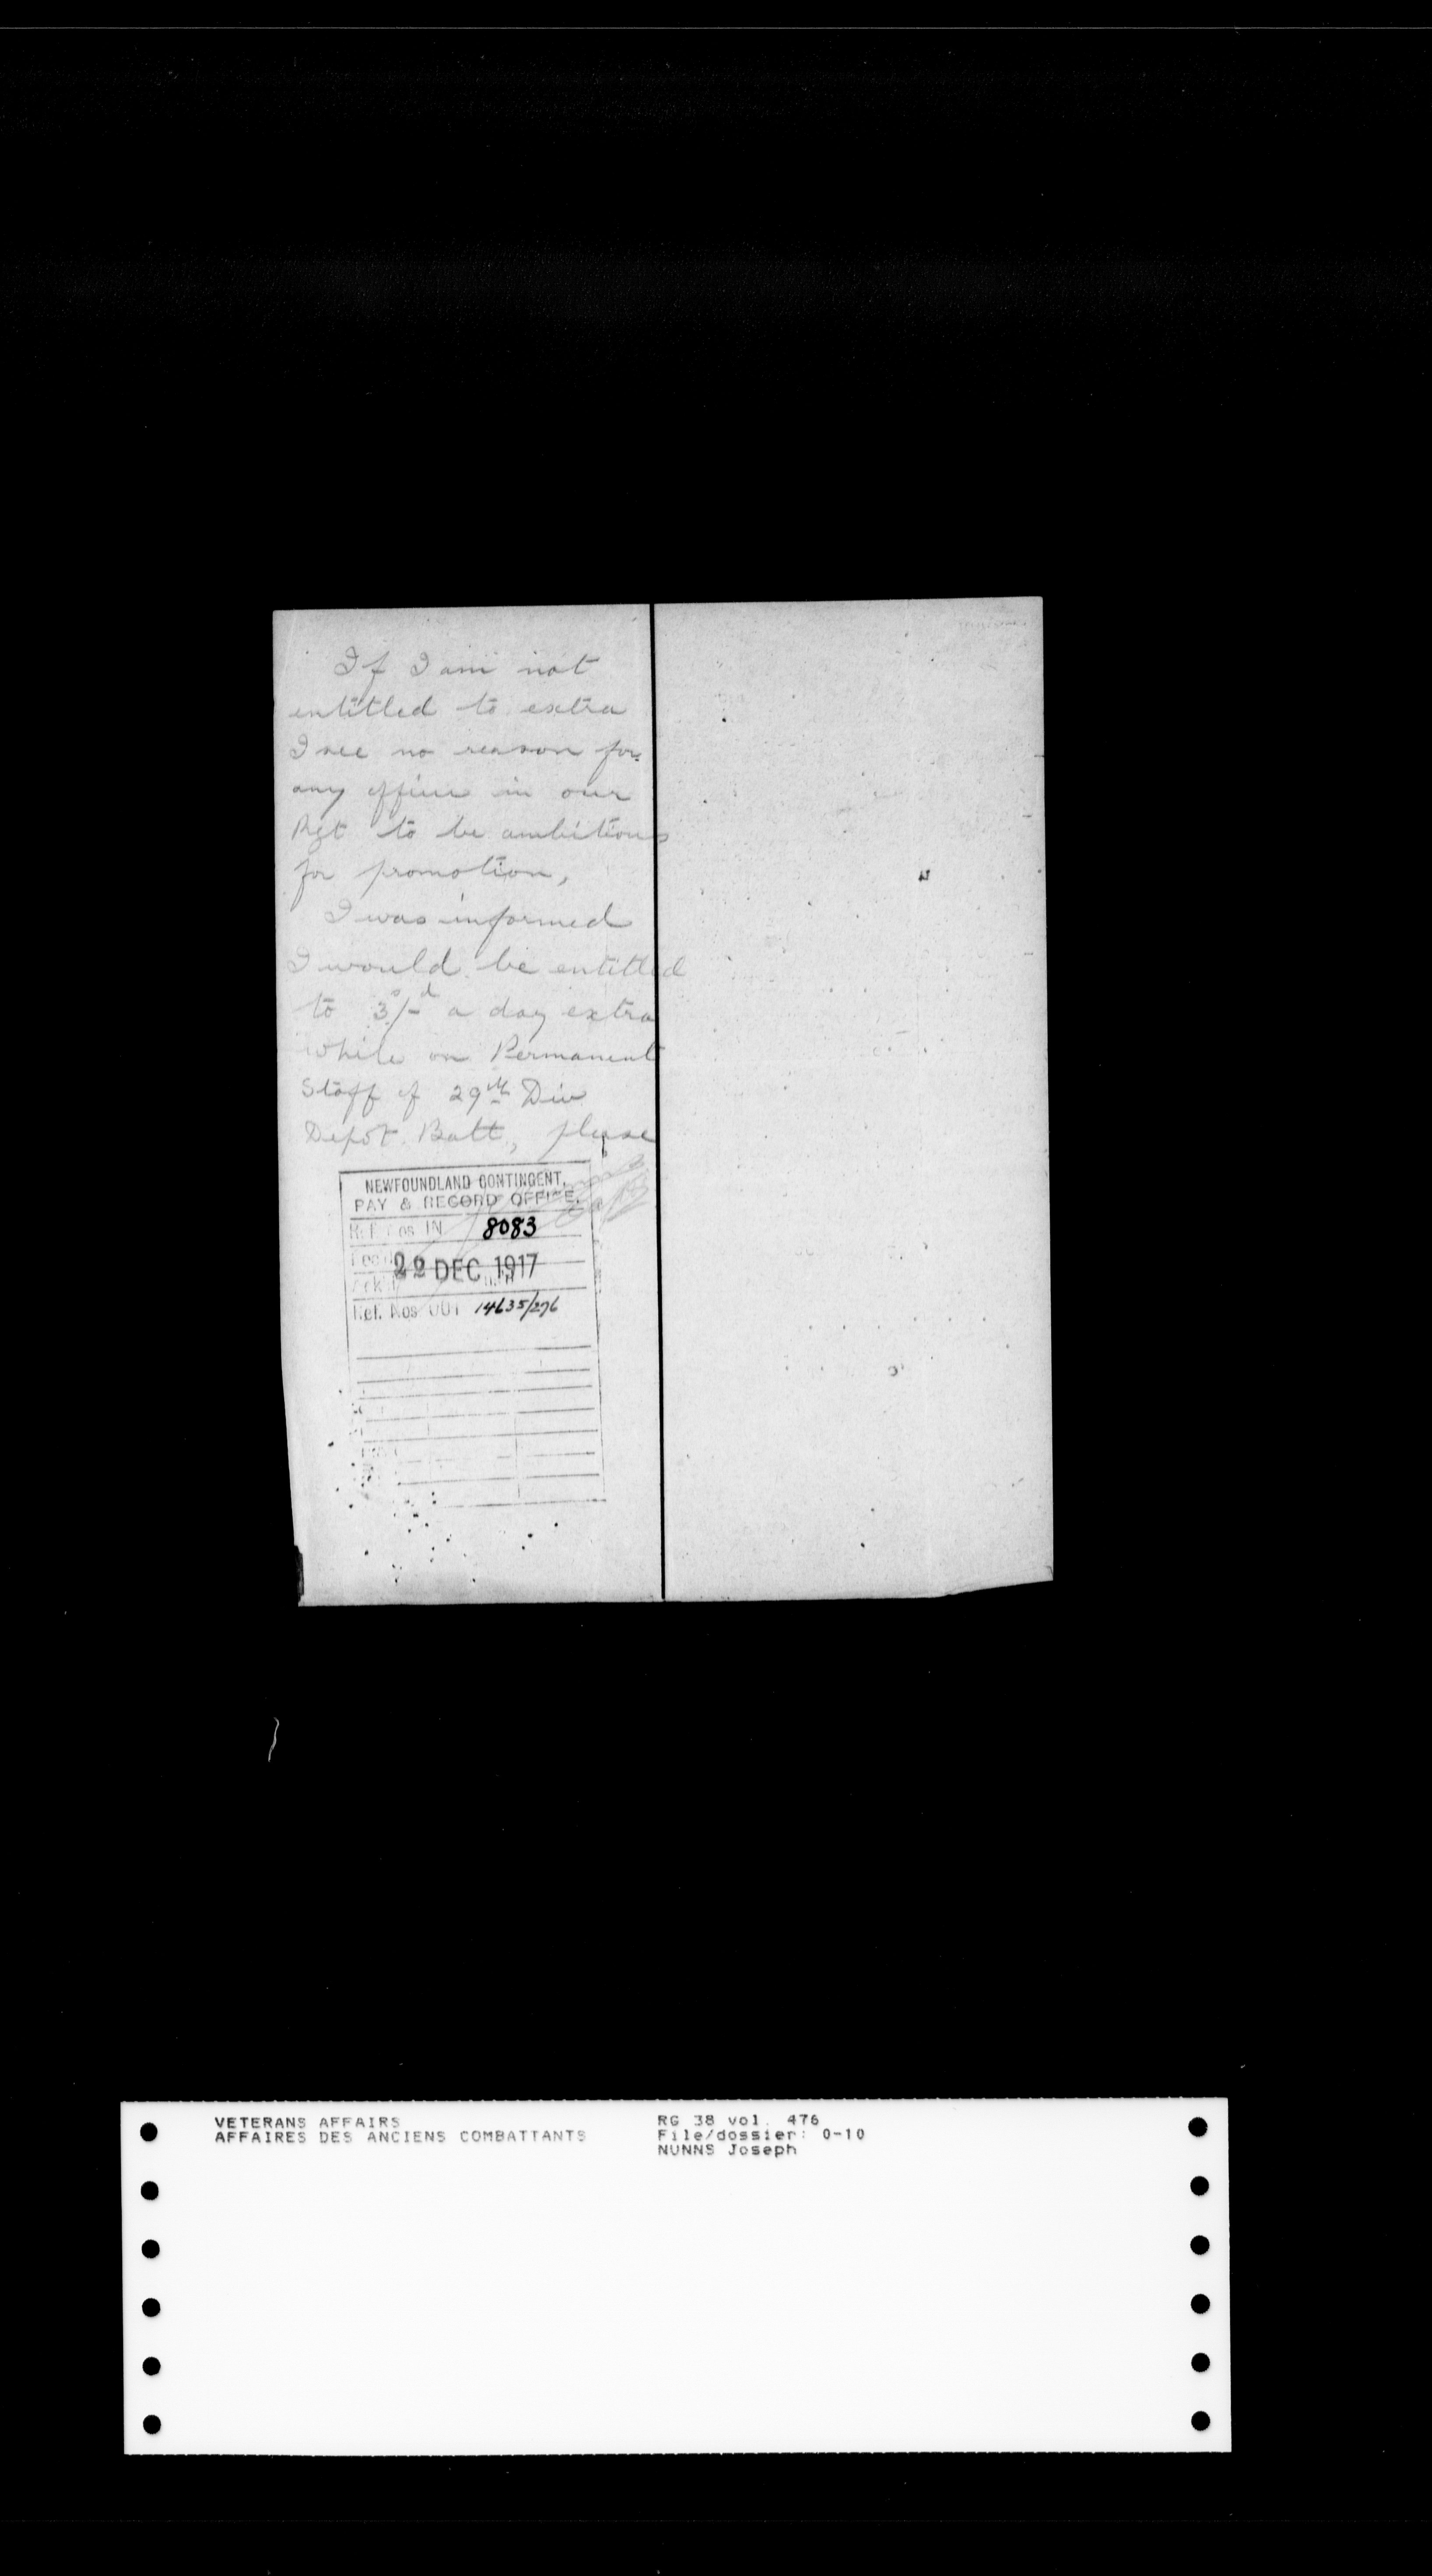 If I am not
entitled to extra
I see no reason for
any officer in our
Rgt to be ambitious
for promotion,
I was informed
I would be entitled
to 3s/-d a day extra
while on Permanent
Staff of 29th Div
Depot Batt, please
NEWFOUNDLAND CONTINGENT,
PAY & RECORD OFFICE.
Ref. Nos IN 8083
22 DEC 1917
Ref. Nos OUT 14635/276
VETERANS AFFAIRS
AFFAIRES DES ANCIENS COMBATTANTS
RG 38 vol. 476
File/dossier: 0-10
NUNNS Joseph